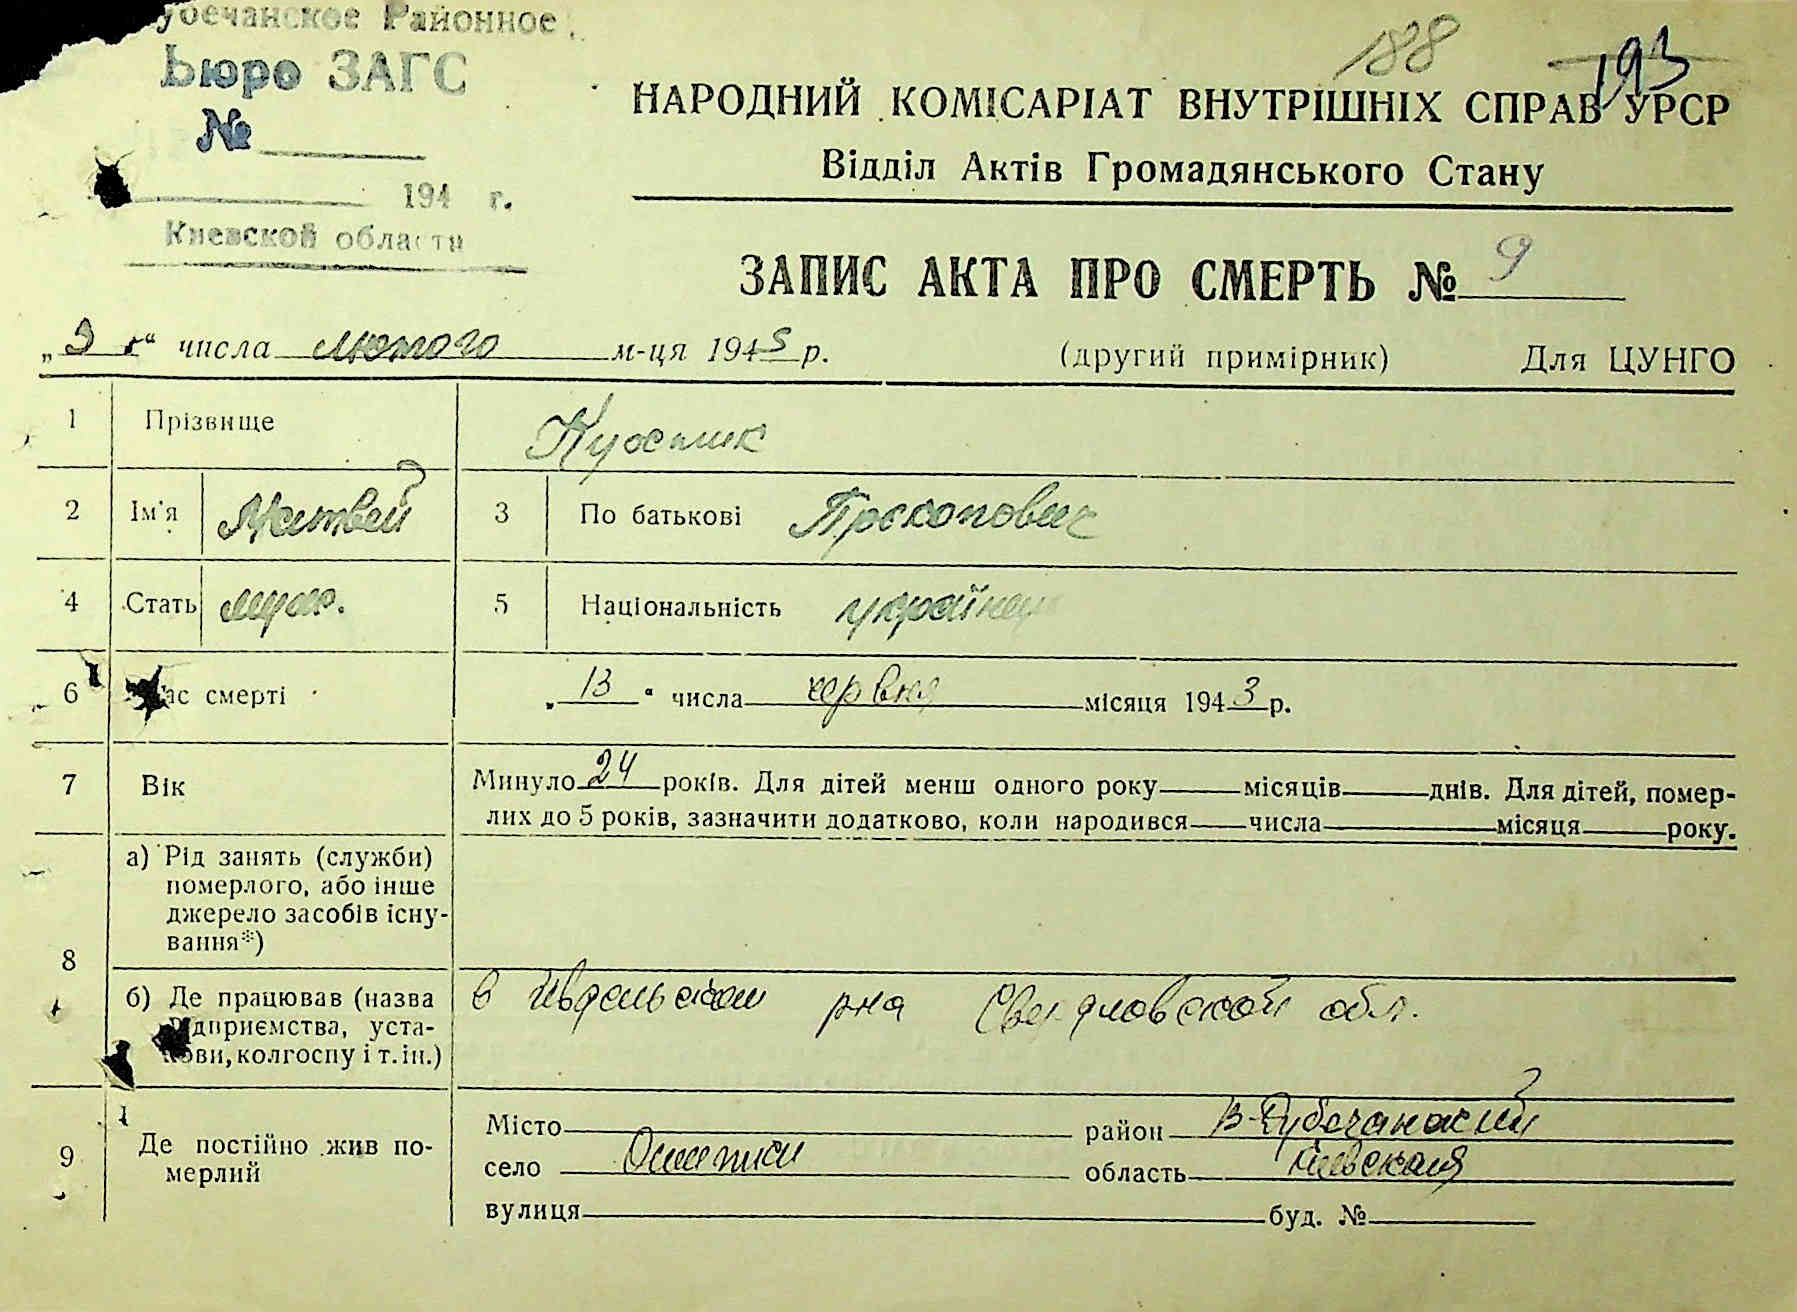 убечанское Районное
Бюро ЗАГС
№
194 г.
Киевской области
188 193
НАРОДНИЙ КОМІСАРІАТ ВНУТРІШНІХ СПРАВ УРСР
Відділ Актів Громадянського Стану
ЗАПИС АКТА ПРО СМЕРТЬ № 9
„ 9 “ числа лютого м-ця 1945 р. (другий примірник) Для ЦУНГО
1 Прізвище
2 Ім'я Матвей 3 По батькові Прокопович
4 Стать муж. 5 Національність українец
6 ас смерті „ 13 “ числа червня місяця 1943 р.
7 Вік Минуло 24 років. Для дітей менш одного року місяців днів. Для дітей, помер-
лих до 5 років, зазначити додатково, коли народився числа місяця року.
8 а) Рід занять (служби)
померлого, або інше
джерело засобів існу-
вання*)
б) Де працював (назва в Ивдельском рна Свердловской обл.
ідприємства, уста-
ови, колгоспу і т. ін.)
9 Де постійно жив по-
мерлий
Місто район В-Дубечанский
село Ошитки область Киевская
вулиця буд. №